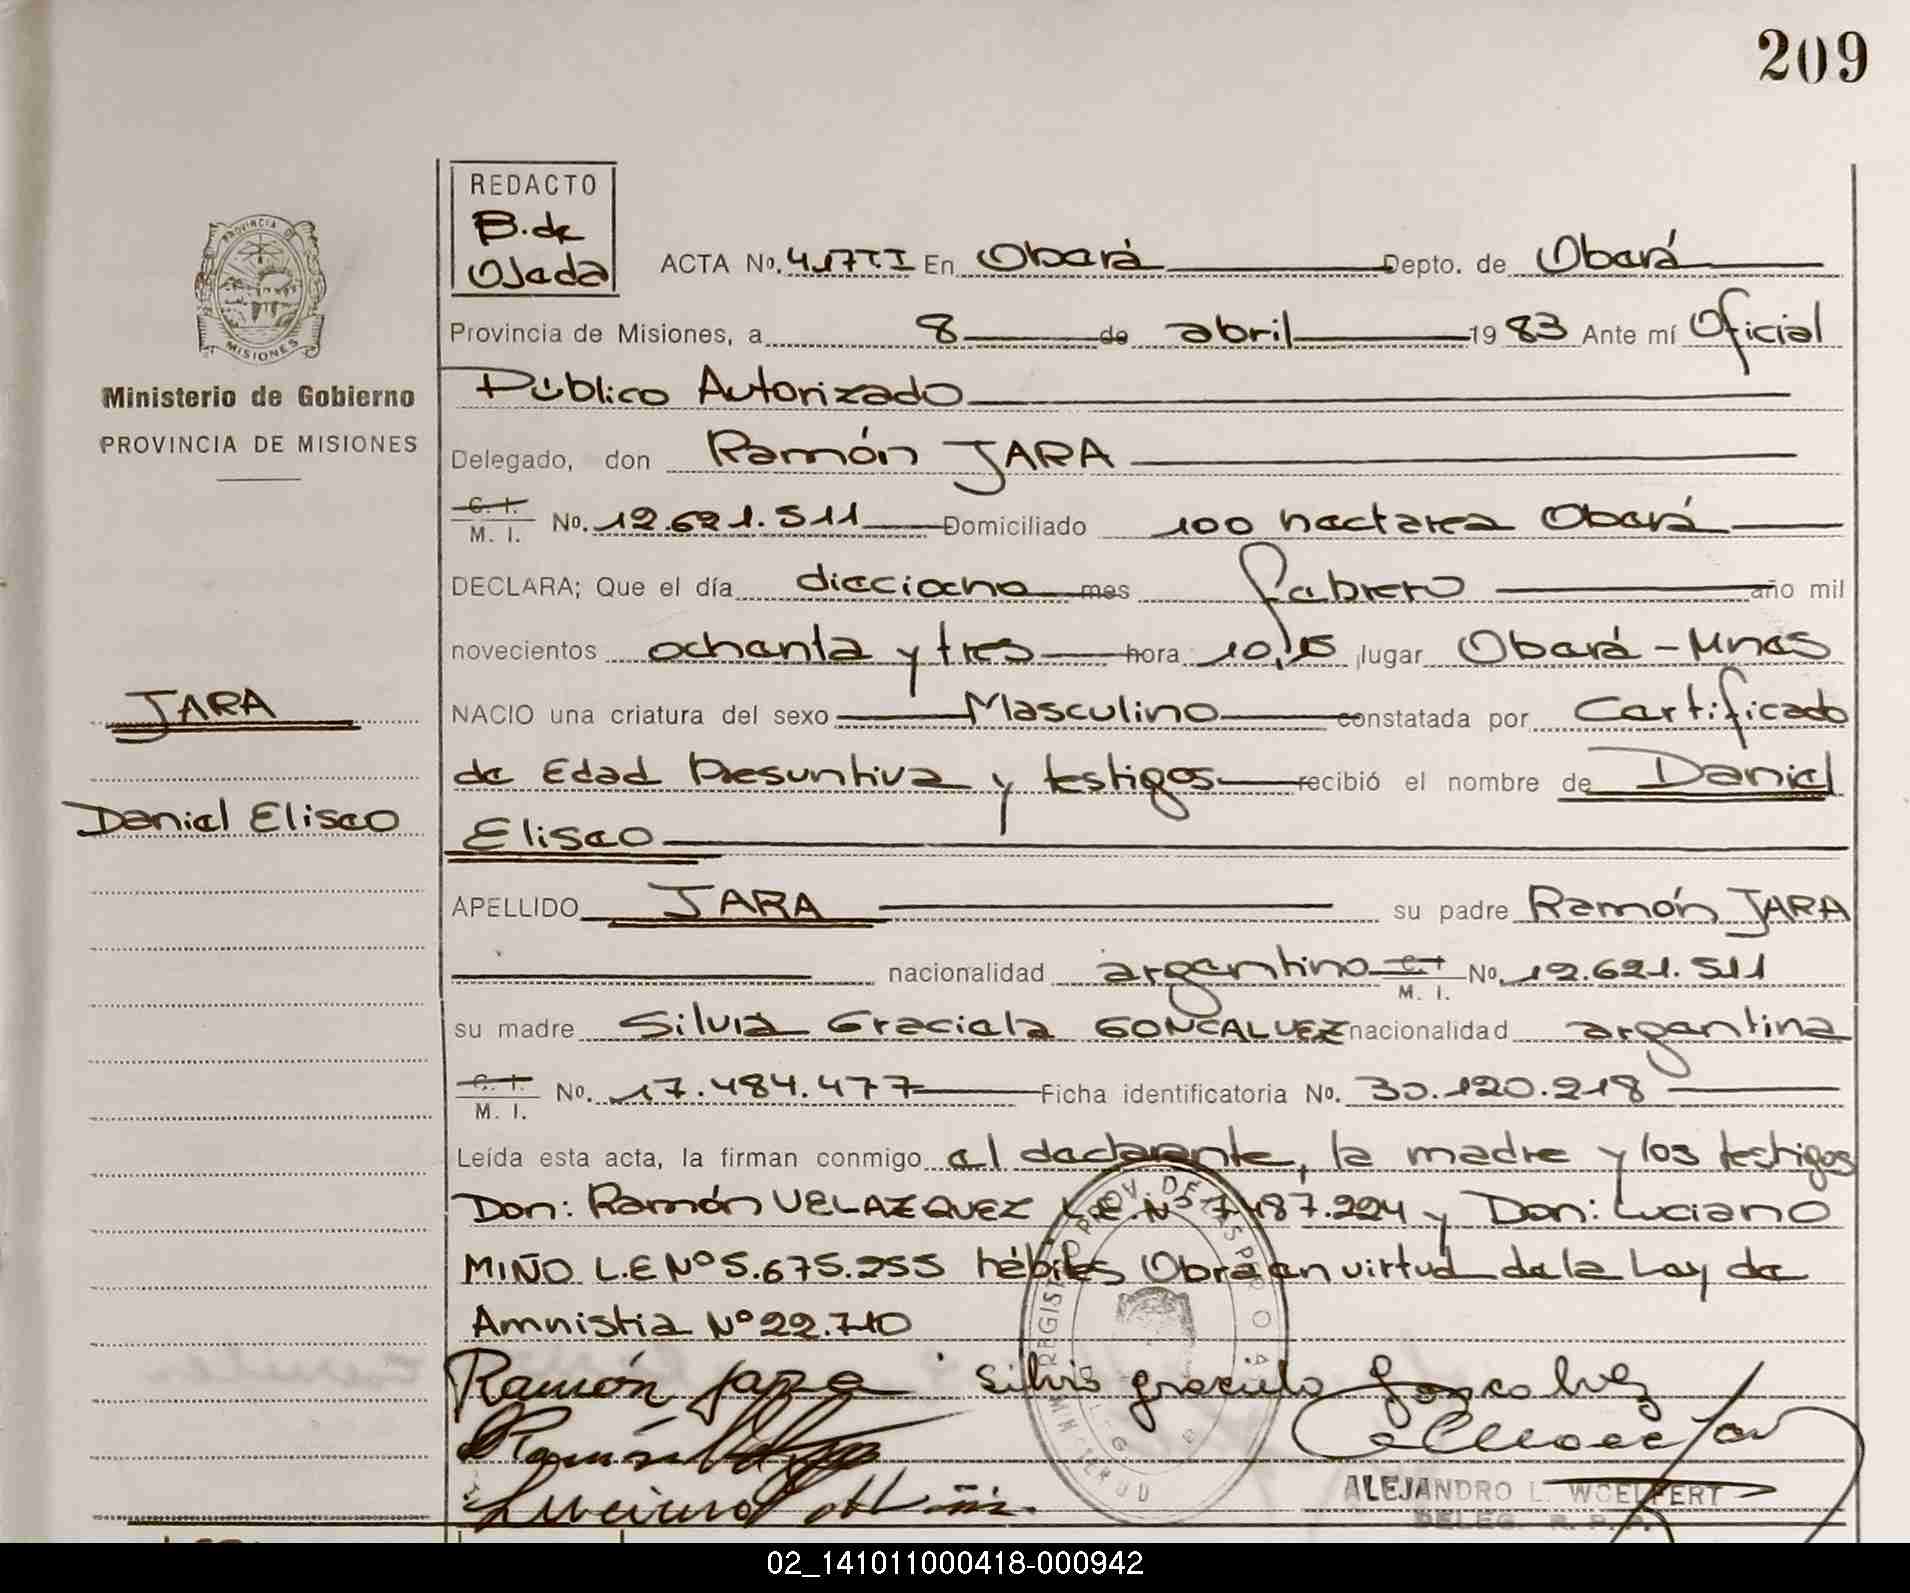 209
REDACTO
B. de
Ojeda
ACTA No. 417 TI En Oberá Depto. de Oberá
PROVINCIA DE
MISIONES
Provincia de Misiones, a 8 de abril 1983 Ante mí Oficial
Ministerio de Gobierno
Público Autorizado
PROVINCIA DE MISIONES
Delegado, don Ramón JARA
C. I.
M. I. No. 12.621.511 Domiciliado 100 hectarea Oberá
DECLARA; Que el día dieciocho mes febrero año mil
novecientos ochenta y tres hora 10,15 lugar Oberá - Mnes
JARA
NACIO una criatura del sexo Masculino constatada por Certificado
de Edad Presuntiva y testigos recibió el nombre de Daniel
Daniel Eliseo
Eliseo
APELLIDO JARA su padre Ramón JARA
nacionalidad argentino C. I. M. I. No. 12.621.511
su madre Silvia Graciela GONCALVEZ nacionalidad argentina
C. I.
M. I. No. 17.484.477 Ficha identificatoria No. 30.120.218
Leída esta acta, la firman conmigo el declarante, la madre y los testigos
Don: Ramón VELAZQUEZ L.E. Nº 7.487.224 y Don: Luciano
MIÑO L.E Nº 5.675.255 hábiles Obra en virtud de la Ley de
Amnistia Nº 22.710
Ramón Jara Silvia graciela Goncalvez
Ramón
Luciano
ALEJANDRO L. WOELFERT
DELEG. R. P. P.
02_141011000418-000942